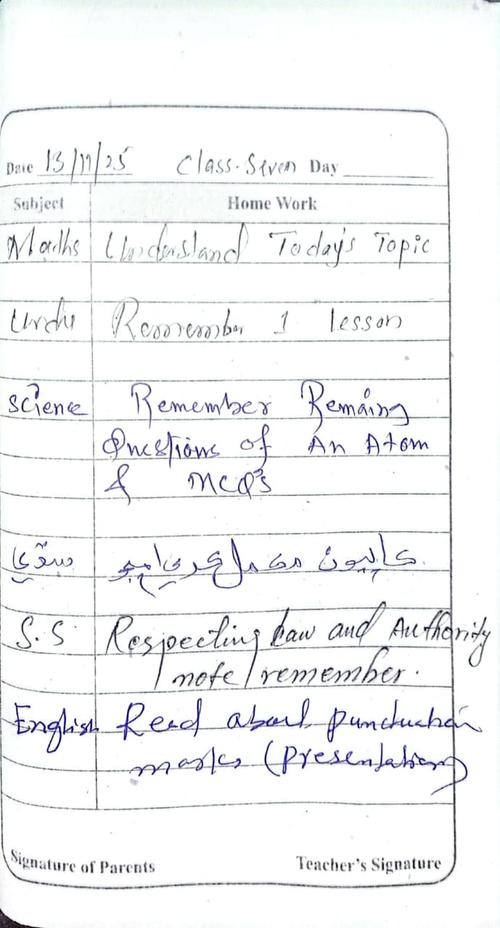 Date 13/11/25 Class-Seven Day
Subject Home Work
Maths Understand Today's Topic
Urdu Remember 1 lesson
Science Remember Remaing
Questions of An Atom
& MCQ's
سنڌي ڪاپيون مڪمل ڪري اچجو
S.S Respecting Law and Authority
note/remember.
English Read about punctuation
marks (presentation)
Signature of Parents Teacher's Signature